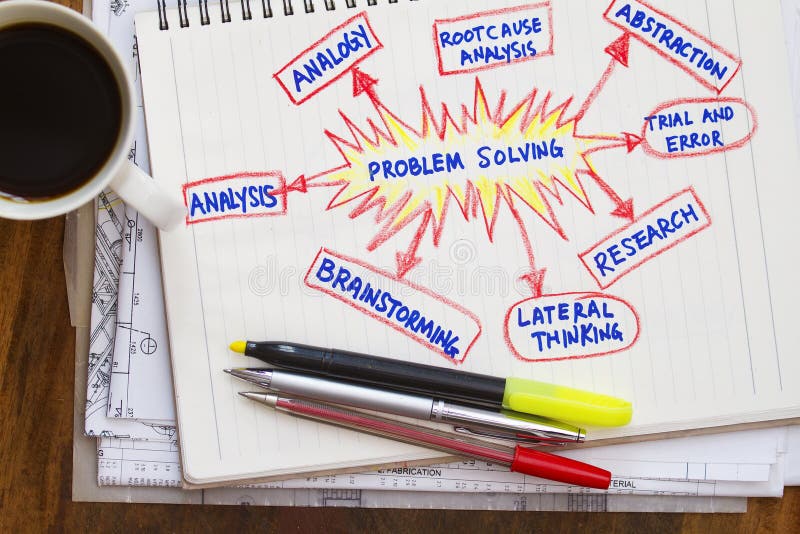 ANALOGY
ROOT CAUSE
ANALYSIS
ABSTRACTION
TRIAL AND
ERROR
PROBLEM SOLVING
ANALYSIS
RESEARCH
BRAINSTORMING
LATERAL
THINKING
dreamstime
FABRICATION